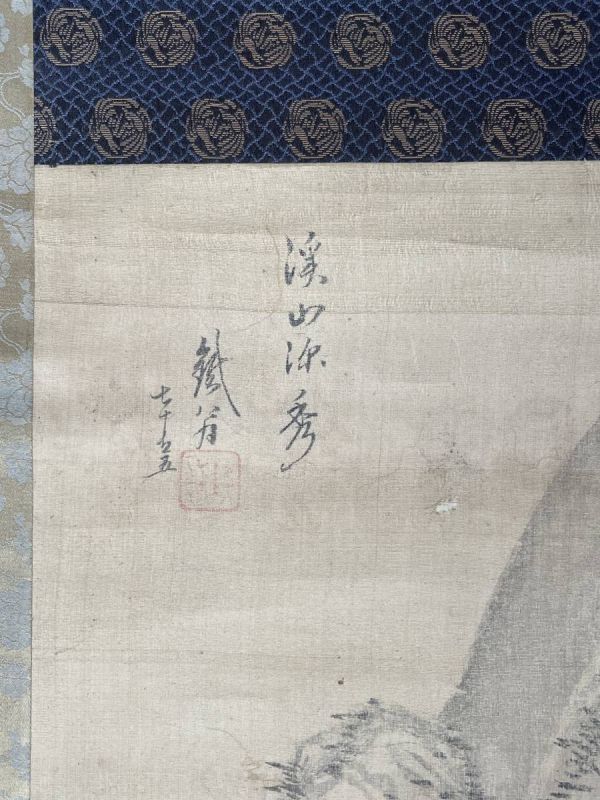 溪山深秀
鐵翁
七十五